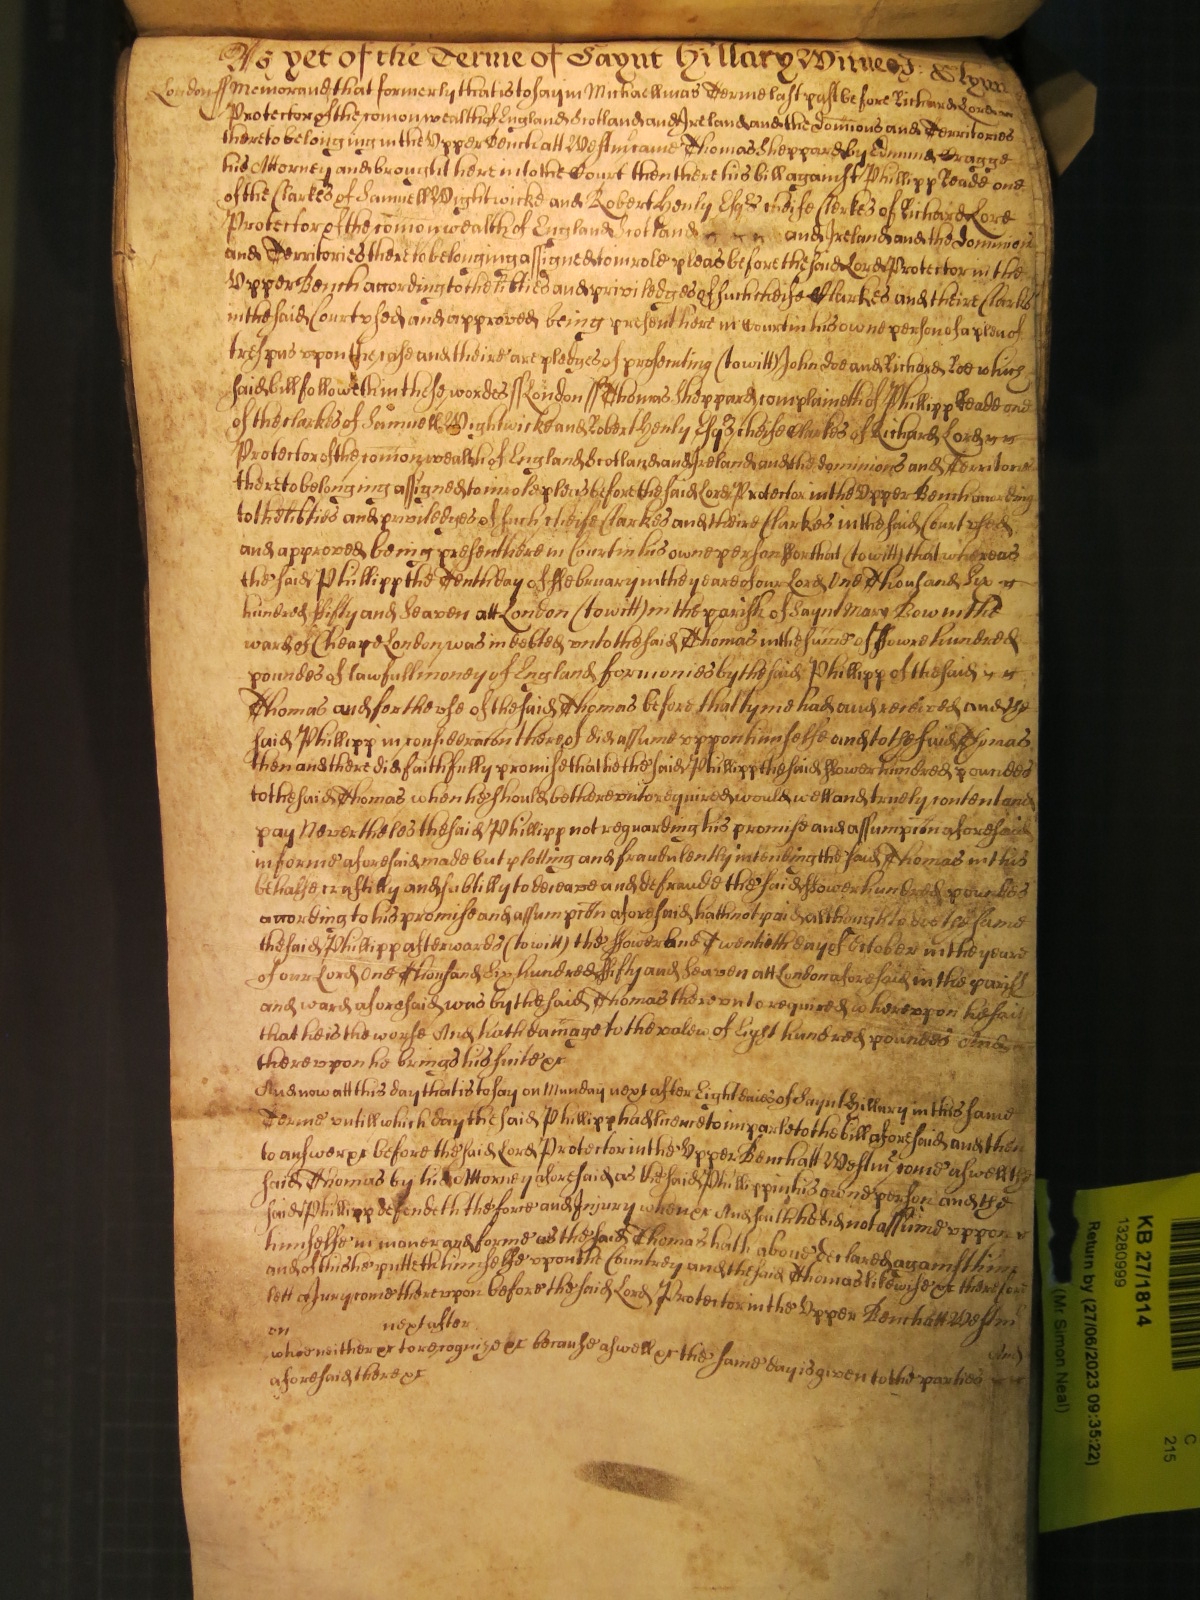 As yet of the Terme of Saynt Hillary Witnes
London ss Memorand that formerly that is to say in Michaellmas Terme last past before Richard Lord
Protector of the comonwealth of England Scotland and Ireland and the Domions and Territories
thereto belonging in the Upper Bench att Westm came Thomas Sheppard by Edmund Bragge
his Attorney and brought here into the Court then there his bill against Phillipp Reade one
of the Clarkes of Samuell Wightwicke and Robert Henly Esqrs cheife Clarkes of Richard Lord
Protector of the comonwealth of England Scotland and Ireland and the Dominions
and Territories thereto belonging assigned to inrole pleas before the said Lord Protector in the
Upper Bench according to the libties and priviledges of such cheife Clarkes and theire Clarks
in the said Court used and approved being present here in Court in his owne person of a plea of
trespas upon the case and theire are pledges of prosecuting (to witt) John Doe and Richard Roe which
said bill followeth in these wordes ss London ss Thomas Sheppard complaineth of Phillipp Reade one
of the clarkes of Samuell Wightwicke and Robert Henly Esqrs cheife Clarkes of Richard Lord
Protector of the comonwealth of England Scotland and Ireland and the dominions and Territories
thereto belonging assigned to inrole pleas before the said Lord Protector in the Upper Bench according
to the libties and priviledges of such cheife Clarkes and theire Clarkes in the said Court used
and approved being present here in Court in his owne person For that (to witt) that whereas
the said Phillipp the Tenth day of February in the yeare of our Lord One Thousand Six
hundred Fifty and Seaven att London (to witt) in the parish of Saynt Mary Bow in the
ward of Cheape London was indebted unto the said Thomas in the sume of Fowre hundred
poundes of lawfull money of England for monies by the said Phillipp of the said
Thomas and for the use of the said Thomas before that tyme had and received and the
said Phillipp in consideracon thereof did assume uppon himselfe and to the said Thomas
then and there did faithfully promise that he the said Phillipp the said Fower hundred poundes
to the said Thomas when he should be thereunto required would well and truely content and
pay Neverthelesse the said Phillipp not reguarding his promise and assumpcon aforesaid
in forme aforesaid made but plotting and fraudulently intending the said Thomas in this
behalfe craftilly and subtilly to deceave and defraude the said Fower hundred poundes
according to his promise and assumpcon aforesaid hath not paid although to doe the same
the said Phillipp afterwards (to witt) the Fower and Twentieth day of October in the yeare
of our Lord One Thousand Six hundred Fifty and Seaven att London aforesaid in the parish
and ward aforesaid was by the said Thomas thereunto required whereupon he saith
that he is the worse And hath damage to the valew of Eight hundred poundes And
thereupon he brings his suite &c
And now att this day that is to say on Munday next after Eight daies of Saynt Hillary in this same
Terme untill which day the said Phillipp had licence to imparle to the bill aforesaid and then
to answer &c before the said Lord Protector in the Upper Bench att Westm come aswell the
said Thomas by his Attorney aforesaid as the said Phillipp in his owne person and the
said Phillipp defendeth the force and Injury when &c And saith he did not assume uppon
himselfe in maner and forme as the said Thomas hath above declared against him
and of this he putteth himselfe upon the Countrey and the said Thomas likewise &c therefore
lett a Jury come thereupon before the said Lord Protector in the Upper Bench att Westm
on next after And
who neither &c to recognize &c because aswell &c the same day is given to the parties
aforesaid there &c
KB 27/1814
13280999
Return by (27/06/2023 09:35:22)
(Mr Simon Neal)
C
215